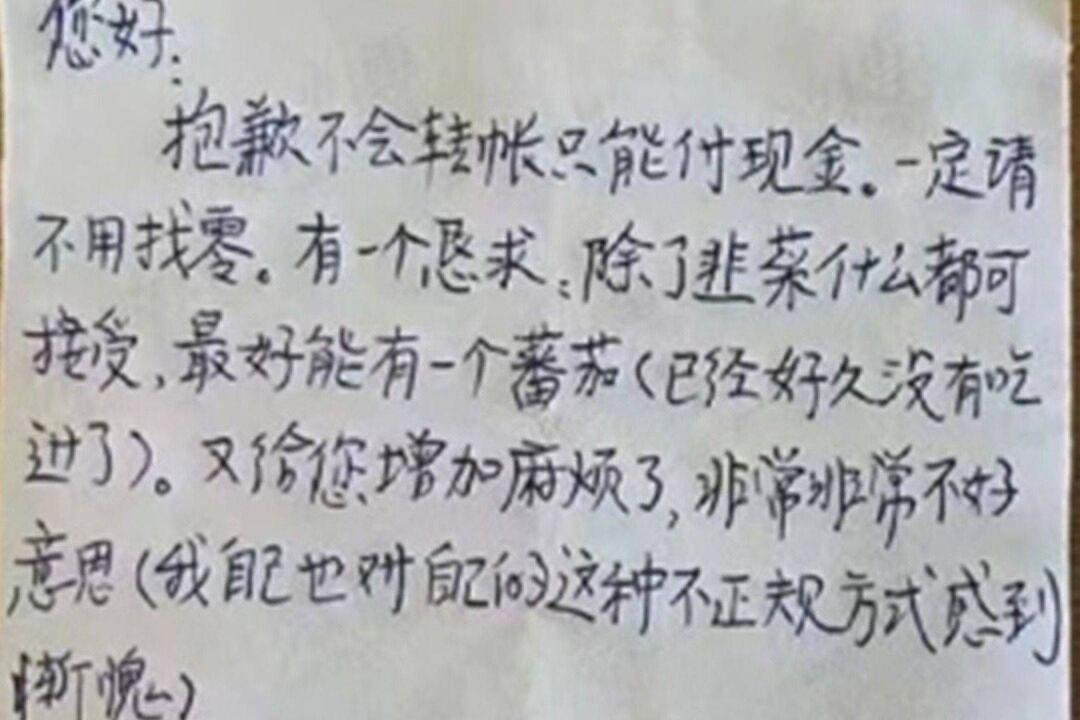 您好:
抱歉不会转帐只能付现金。一定请
不用找零。有一个恳求:除了韭菜什么都可
接受,最好能有一个蕃茄(已经好久没有吃
进了)。又给您增加麻烦了,非常非常不好
意思(我自己也对自己的这种不正规方式感到
惭愧)